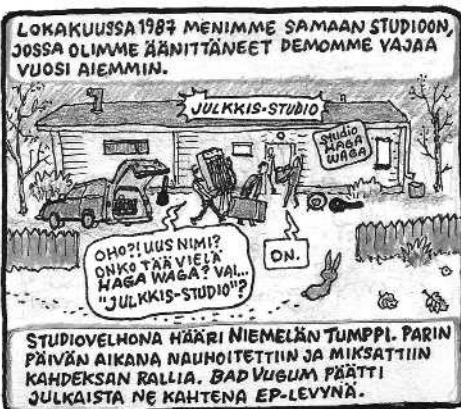 LOKAKUUSSA 1987 MENIMME SAMAAN STUDIOON,
JOSSA OLIMME ÄÄNITTÄNEET DEMOMME VAJAA
VUOSI AIEMMIN.
JULKKIS-STUDIO
STUDIO
HAGA
WAGA
OHO?! UUS NIMI?
ONKO TÄÄ VIELÄ
HAGA WAGA? VAI...
"JULKKIS-STUDIO"?
ON.
STUDIOVELHONA HÄÄRI NIEMELÄN TUMPPI. PARIN
PÄIVÄN AIKANA NAUHOITETTIIN JA MIKSATTIIN
KAHDEKSAN RALLIA. BAD VUGUM PÄÄTTI
JULKAISTA NE KAHTENA EP-LEVYNÄ.